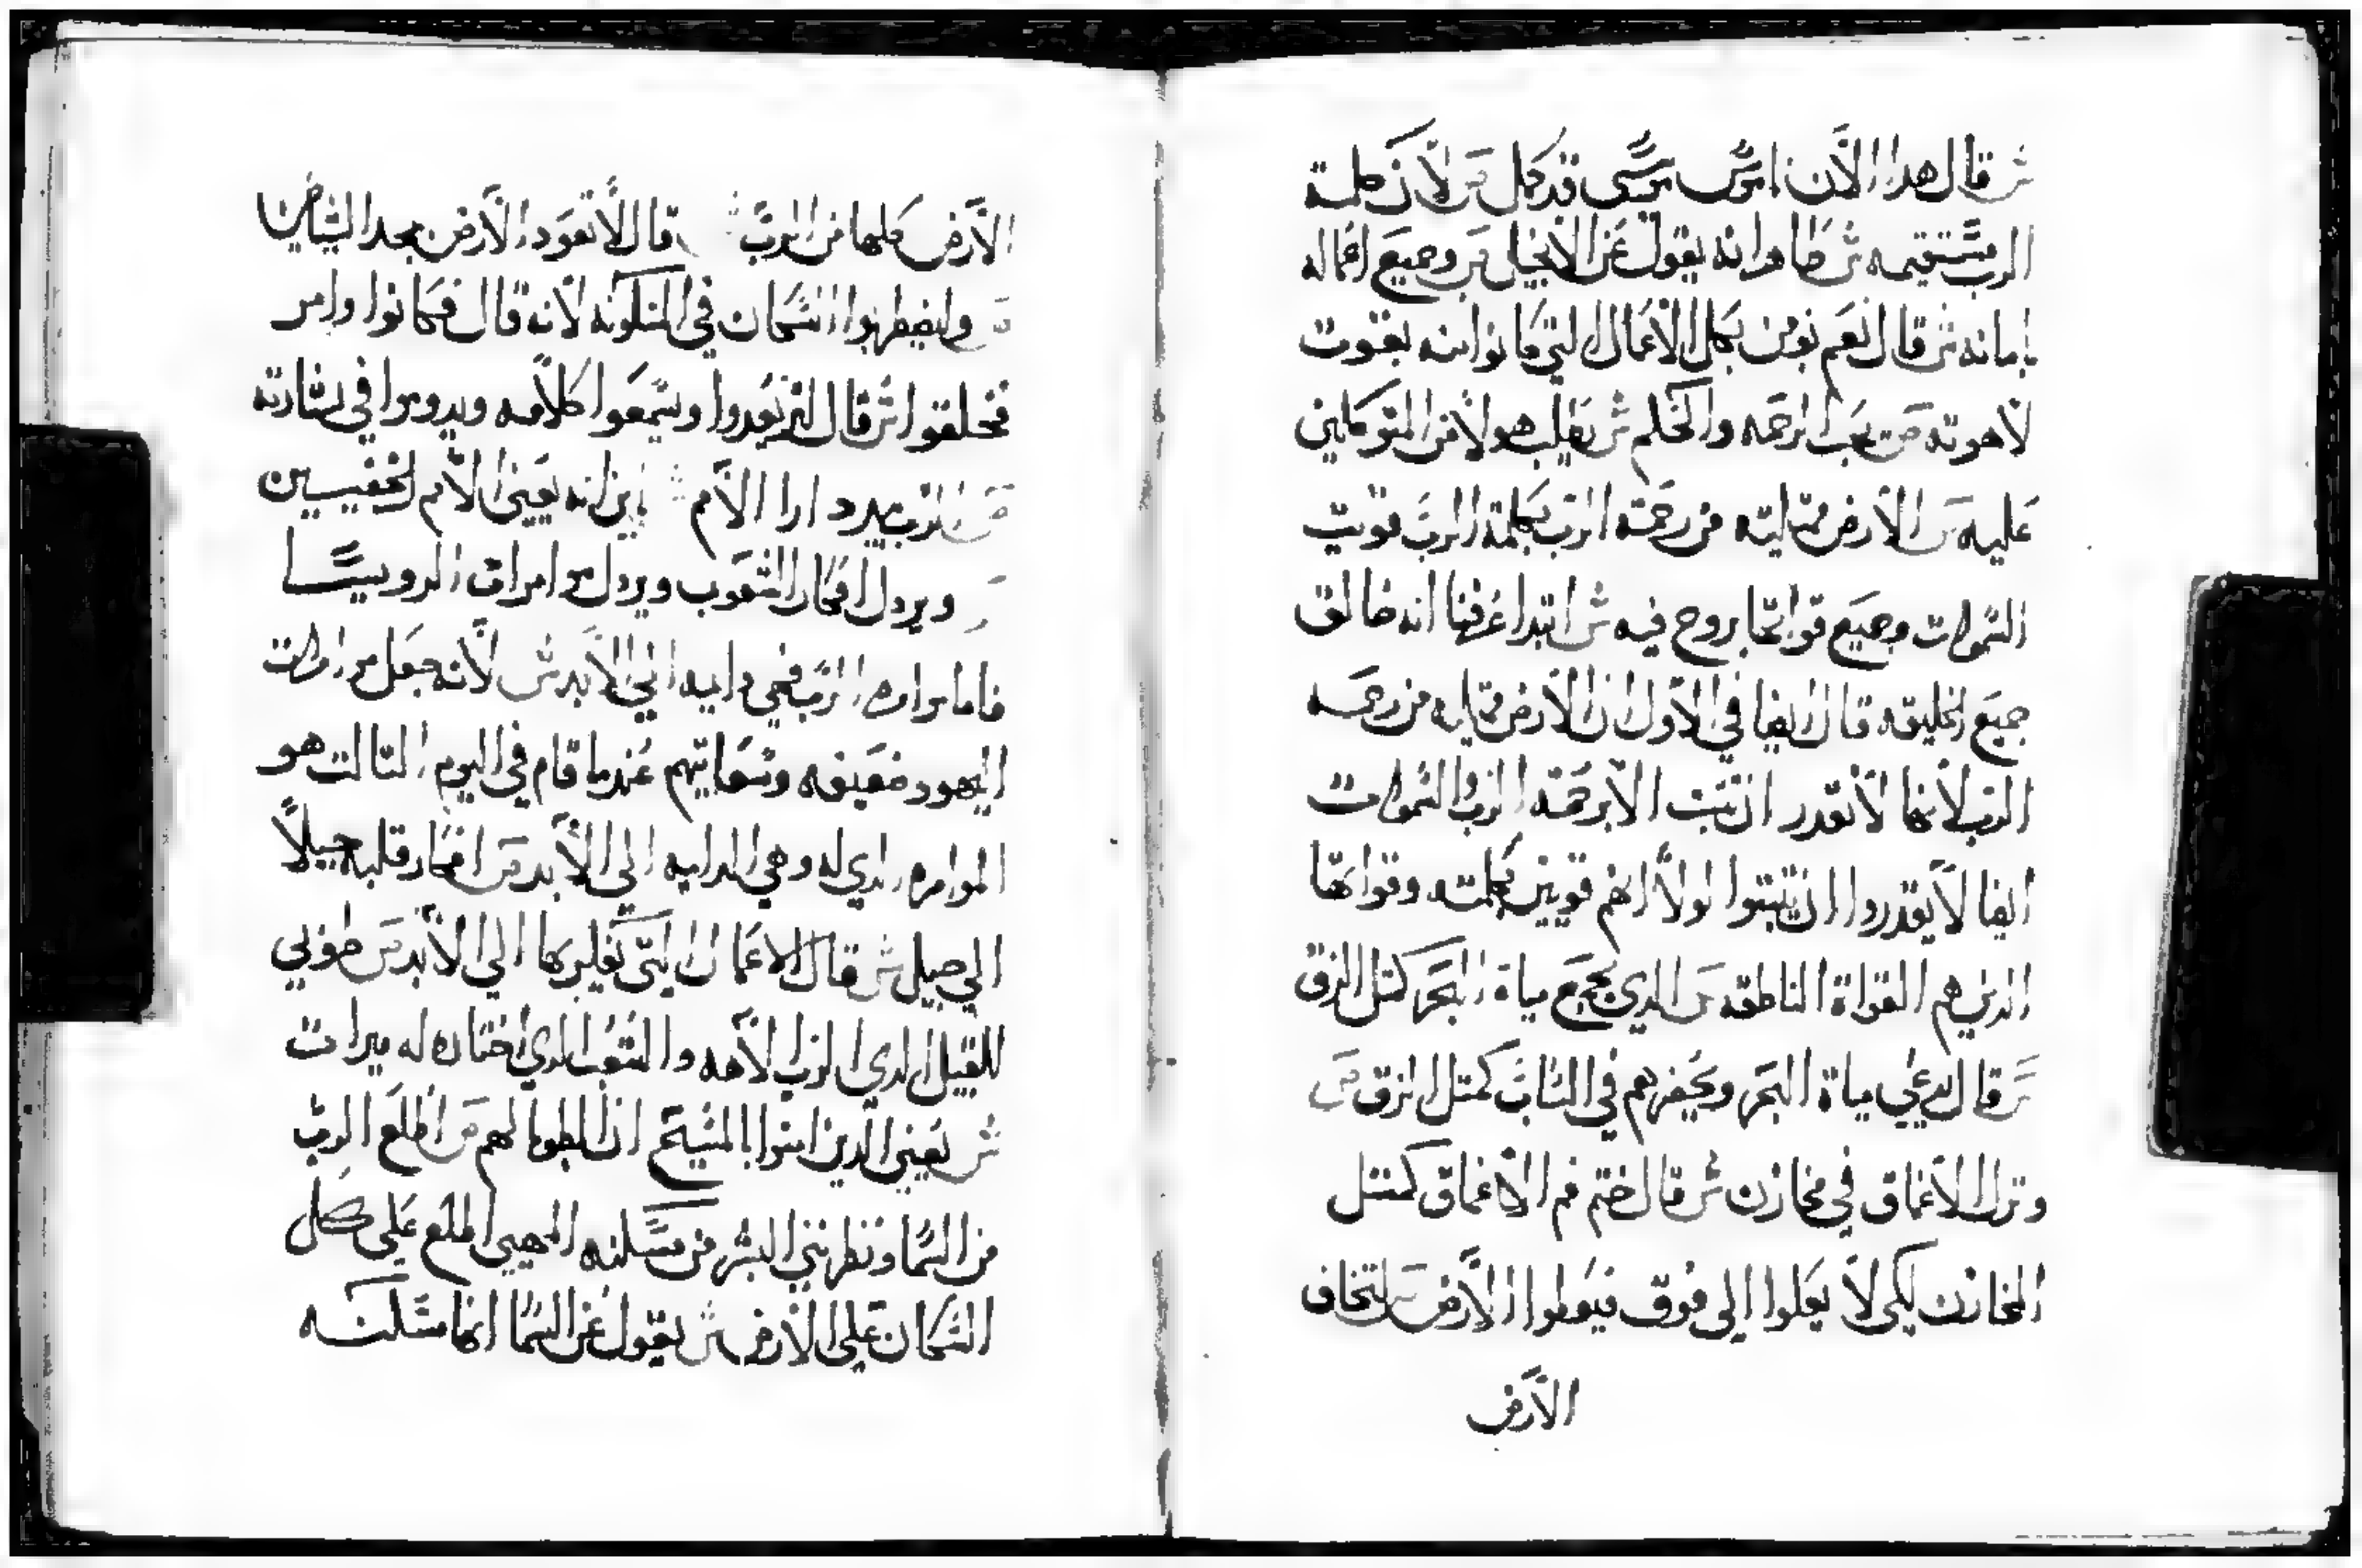 ش قال هدا الآن ناموس موسى قد كمل ص لآن كلمة
الرب مستقيمه ش ظاهرا انه يقول عن الانجيل ص وجميع اعماله
بامانه ش قال نعم نومن بكل الاعمال التي كانوا منه بقوت
لاهوته ص يحب الرحمه والحكم ش يقلب هولاء من المتوكلين
عليه ص الارض ممتليه من رحمة الرب بكلمة الرب قويت
السموات وجميع قواتها بروح فيه ش ابتدا عرفنا انه خالق
جميع الخليقه قال ايضا في الاول ان الارض ممتليه من رحمه
الرب لانها لا تقدر ان تتبت الا برحمة الرب والسموات
ايضا لا يقدروا ان يتبتوا لولا انهم قويين بكلمته وقواتها
الدين هم القواة الناطقه ص الدي يجمع مياة البحر كمتل الزق
ش قال يدعي مياة البحر ويحفرهم في السحاب كمتل الزق ص
وترك الاعماق في مخازن ش قال ختم فم الاعماق كمتل
المخازن لكي لا يعلوا الى فوق فيغطوا الارض ص لتخاف
الارض
الارض كلها من الرب ش قال لا تعود الارض بجدا الشياطين
ص وليضطربوا السكان في المسكونه لانه قال فكانوا وامر
فخلقوا ش قال لتربعدوا ويسمعوا كلامه ويدوبوا في بشارته
ص الرب يبدد ارا الامم ش اين انه يعني الامم الحنفيسين
ص ويردل افكار الشعوب ويردل موامرات الروسيا
فاما موامرة الرب فهي دايمه الي الابد ش لانه جعل موامرات
اليهود ضعيفه وشعابتهم عندما قام في اليوم التالت هو
الموامره الدي له وهي الدايمه الي الابد ص افكار قلبه جيلاً
الي جيل ش قال الاعمال التي تفكر بها الي الابد ص طوبي
للقبيل الدي الرب الاهه والشعب الدي اختاره له ميرات
ش يعني الدين امنوا بالمسيح ان الطوبا لهم ص اطلع الرب
من السما ونظر بني البشر من مسكنه المهيي اطلع علي كل
السكان علي الارض ش يقول عن السما انها مسكنه